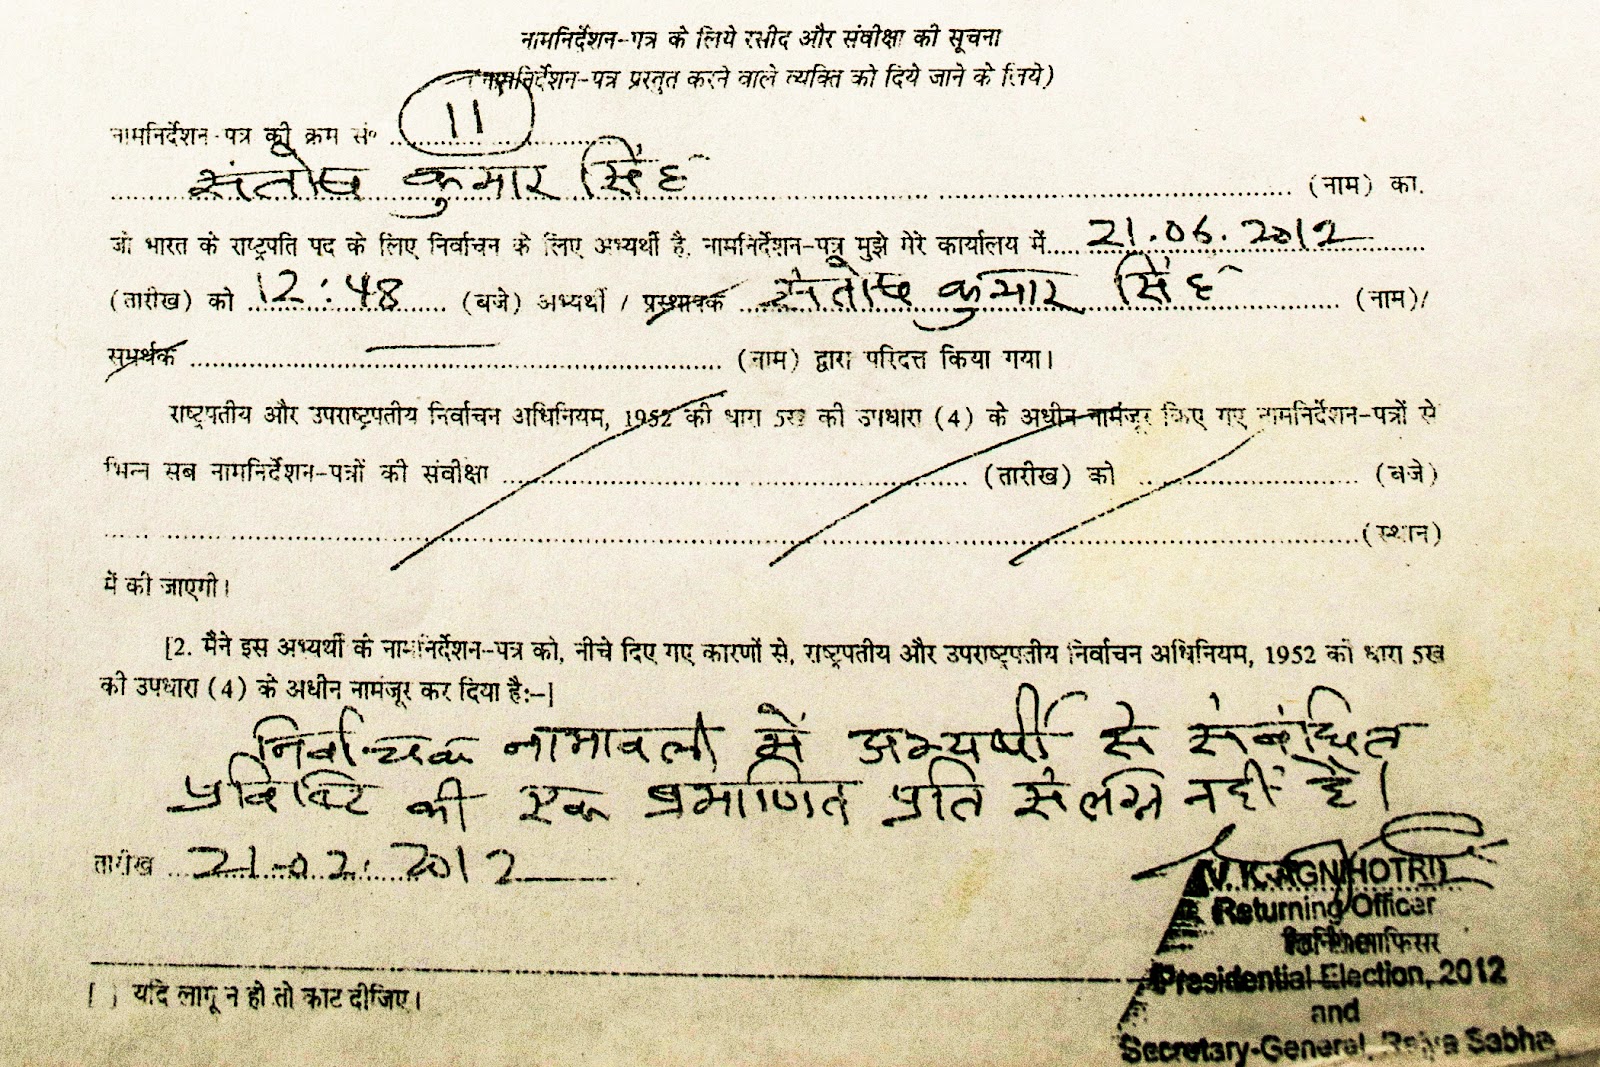 नामनिर्देशन-पत्र के लिये रसीद और संवीक्षा की सूचना
(नामनिर्देशन-पत्र प्रस्तुत करने वाले व्यक्ति को दिये जाने के लिये)
नामनिर्देशन-पत्र की क्रम सं० 11
संतोष कुमार सिंह (नाम) का.
जो भारत के राष्ट्रपति पद के लिए निर्वाचन के लिए अभ्यर्थी है, नामनिर्देशन-पत्र मुझे मेरे कार्यालय में 21.06.2012
(तारीख) को 12:48 (बजे) अभ्यर्थी / प्रस्थापक संतोष कुमार सिंह (नाम)/
समर्थक (नाम) द्वारा परिदत्त किया गया।
राष्ट्रपतीय और उपराष्ट्रपतीय निर्वाचन अधिनियम, 1952 की धारा 5ख की उपधारा (4) के अधीन नामंजूर किए गए नामनिर्देशन-पत्रों से
भिन्न सब नामनिर्देशन-पत्रों की संवीक्षा (तारीख) को (बजे)
(स्थान)
में की जाएगी।
[2. मैंने इस अभ्यर्थी के नामनिर्देशन-पत्र को, नीचे दिए गए कारणों से, राष्ट्रपतीय और उपराष्ट्रपतीय निर्वाचन अधिनियम, 1952 की धारा 5ख
की उपधारा (4) के अधीन नामंजूर कर दिया है:-]
निर्वाचक नामावली में अभ्यर्थी से संबंधित
प्रविष्टि की एक प्रमाणित प्रति संलग्न नहीं है।
तारीख 21-02.2012
V. K. AGNIHOTRI
Returning Officer
रिटर्निंग आफिसर
Presidential Election, 2012
and
Secretary-General, Rajya Sabha
[ ] यदि लागू न हो तो काट दीजिए।